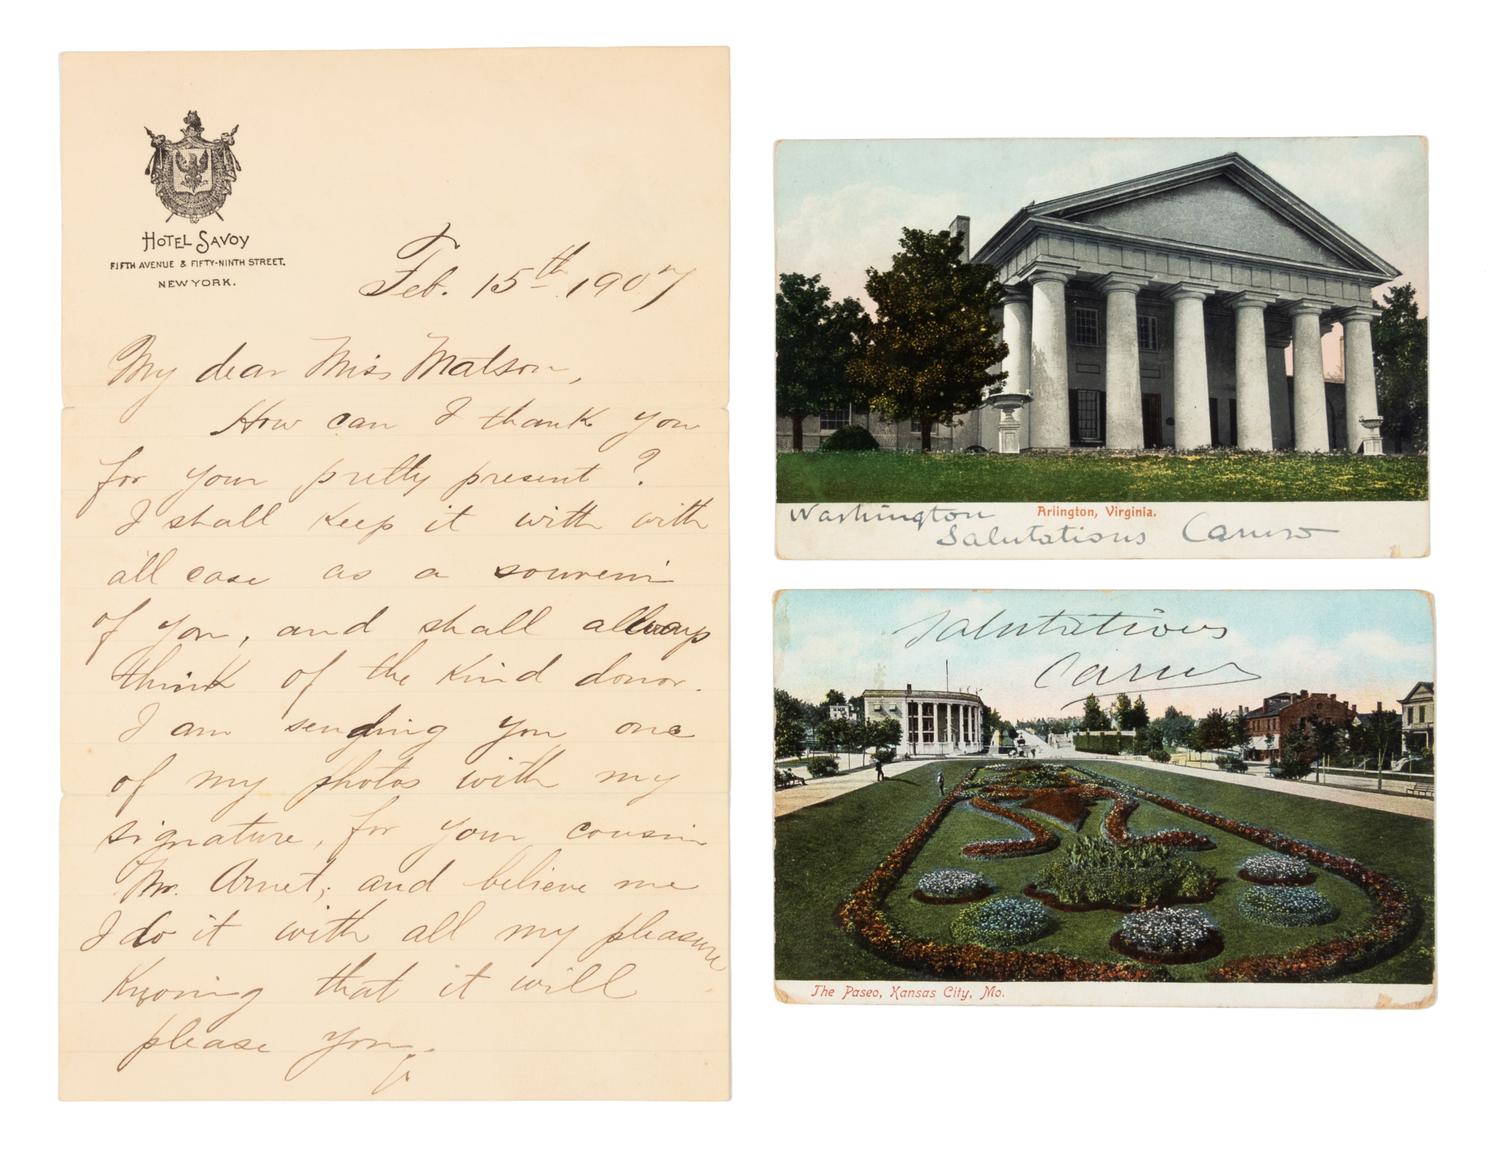 HOTEL SAVOY
FIFTH AVENUE & FIFTY-NINTH STREET.
NEW YORK.
Feb. 15th 1907
My dear Miss Matson,
How can I thank you
for your pretty present?
I shall keep it with with
all case as a souvenir
of you, and shall allways
think of the kind donor.
I am sending you one
of my photos with my
signature, for your cousin
Mr. Arnet; and believe me
I do it with all my pleasure
knowing that it will
please you.
Arlington, Virginia.
Washington
Salutations Caruso
Salutations
Caruso
The Paseo, Kansas City, Mo.